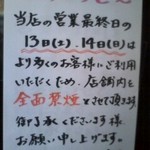 当店の営業最終日の
13日(土).14日(日)は
より多くのお客様にご利用
いただくため、店舗内を
全面禁煙とさせて頂きます
御了承くださいます様
お願い申し上げます。